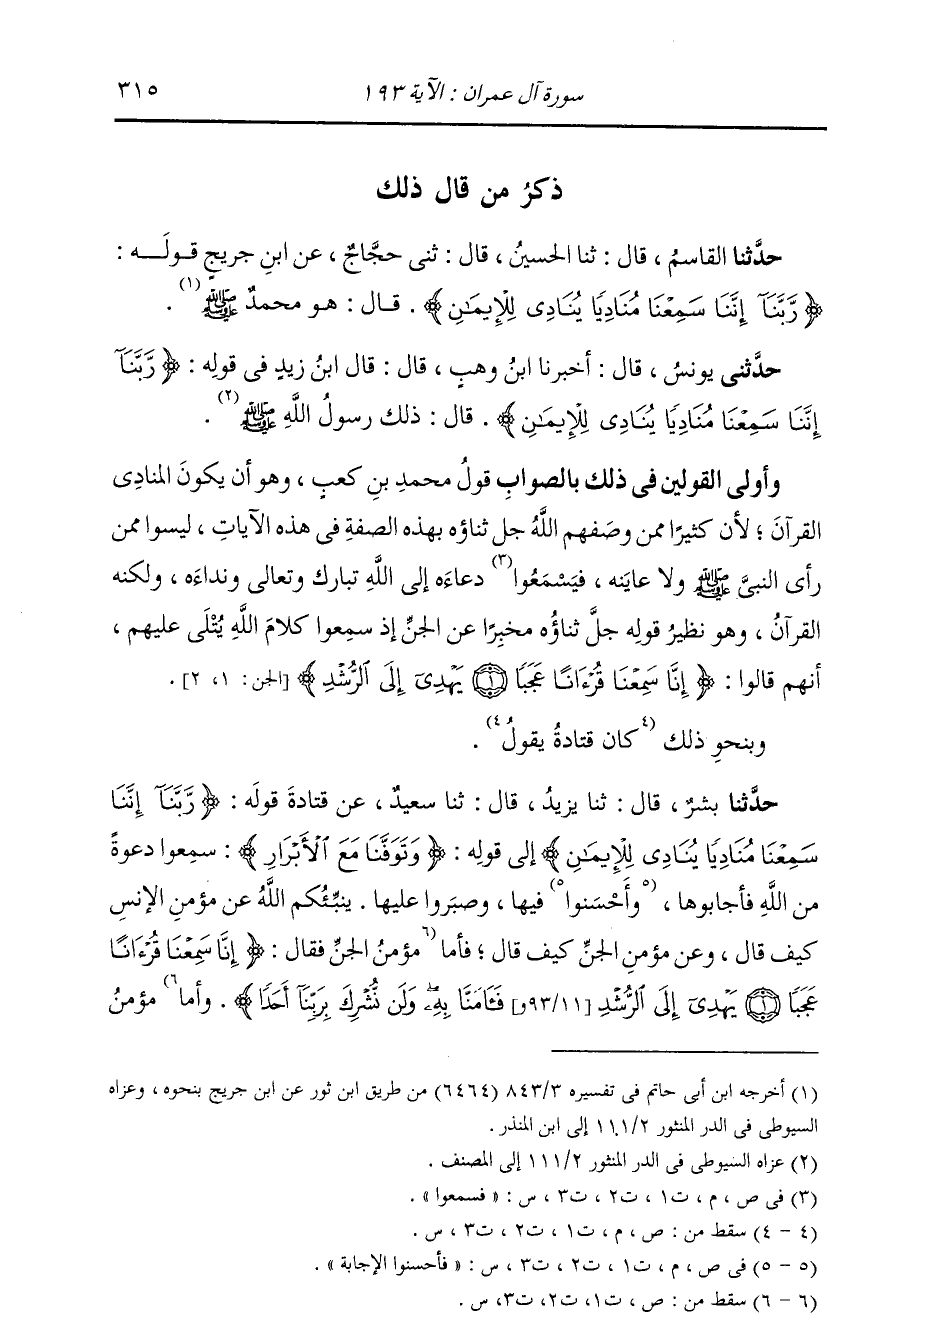 سورة آل عمران : الآية ١٩٣
٣١٥
ذكرُ من قال ذلك
حدَّثنا القاسمُ ، قال : ثنا الحسينُ ، قال : ثنى حجَّاجٌ ، عن ابنِ جريجٍ قولَه :
﴿ رَّبَّنَآ إِنَّنَا سَمِعْنَا مُنَادِيًا يُنَادِى لِلْإِيمَٰنِ ﴾ . قال : هو محمدٌ ﷺ (١) .
حدَّثنى يونسُ ، قال : أخبرنا ابنُ وهبٍ ، قال : قال ابنُ زيدٍ فى قولِه : ﴿ رَّبَّنَآ
إِنَّنَا سَمِعْنَا مُنَادِيًا يُنَادِى لِلْإِيمَٰنِ ﴾ . قال : ذلك رسولُ اللَّهِ ﷺ (٢) .
وأولى القولين فى ذلك بالصوابِ قولُ محمدِ بنِ كعبٍ ، وهو أن يكونَ المنادِى
القرآنَ ؛ لأن كثيرًا ممن وصَفهم اللَّهُ جل ثناؤه بهذه الصفةِ فى هذه الآياتِ ، ليسوا ممن
رأى النبىَّ ﷺ ولا عاينه ، فيَسْمَعُوا (٣) دعاءَه إلى اللَّهِ تبارك وتعالى ونداءَه ، ولكنه
القرآنُ ، وهو نظيرُ قولِه جلَّ ثناؤُه مخبِرًا عن الجنِّ إذ سمِعوا كلامَ اللَّهِ يُتْلَى عليهم ،
أنهم قالوا : ﴿ إِنَّا سَمِعْنَا قُرْءَانًا عَجَبًا ۝١ يَهْدِىٓ إِلَى ٱلرُّشْدِ ﴾ [الجن: ١، ٢] .
وبنحوِ ذلك (٤ كان قتادةُ يقولُ ٤) .
حدَّثنا بشرٌ ، قال : ثنا يزيدُ ، قال : ثنا سعيدٌ ، عن قتادةَ قولَه : ﴿ رَّبَّنَآ إِنَّنَا
سَمِعْنَا مُنَادِيًا يُنَادِى لِلْإِيمَٰنِ ﴾ إلى قولِه : ﴿ وَتَوَفَّنَا مَعَ ٱلْأَبْرَارِ ﴾ : سمِعوا دعوةً
من اللَّهِ فأجابوها ، (٥ وأَحْسَنوا ٥) فيها ، وصبَروا عليها . ينبِّئُكم اللَّهُ عن مؤمنِ الإنسِ
كيف قال ، وعن مؤمنِ الجنِّ كيف قال ؛ فأما (٦ مؤمنُ الجنِّ فقال : ﴿ إِنَّا سَمِعْنَا قُرْءَانًا
عَجَبًا ۝١ يَهْدِىٓ إِلَى ٱلرُّشْدِ [٩٣/١١و] فَـَٔامَنَّا بِهِۦ وَلَن نُّشْرِكَ بِرَبِّنَآ أَحَدًا ﴾ . وأما ٦) مؤمنُ
(١) أخرجه ابن أبى حاتم فى تفسيره ٨٤٣/٣ (٤٦٦٤) من طريق ابن ثور عن ابن جريج بنحوه ، وعزاه
السيوطى فى الدر المنثور ١١١/٢ إلى ابن المنذر .
(٢) عزاه السيوطى فى الدر المنثور ١١١/٢ إلى المصنف .
(٣) فى ص ، م ، ت١ ، ت٢ ، ت٣ ، س : « فسمعوا » .
(٤ - ٤) سقط من : ص ، م ، ت١ ، ت٢ ، ت٣ ، س .
(٥ - ٥) فى ص ، م ، ت١ ، ت٢ ، ت٣ ، س : « فأحسنوا الإجابة » .
(٦ - ٦) سقط من : ص ، ت١، ت٢، ت٣، س .